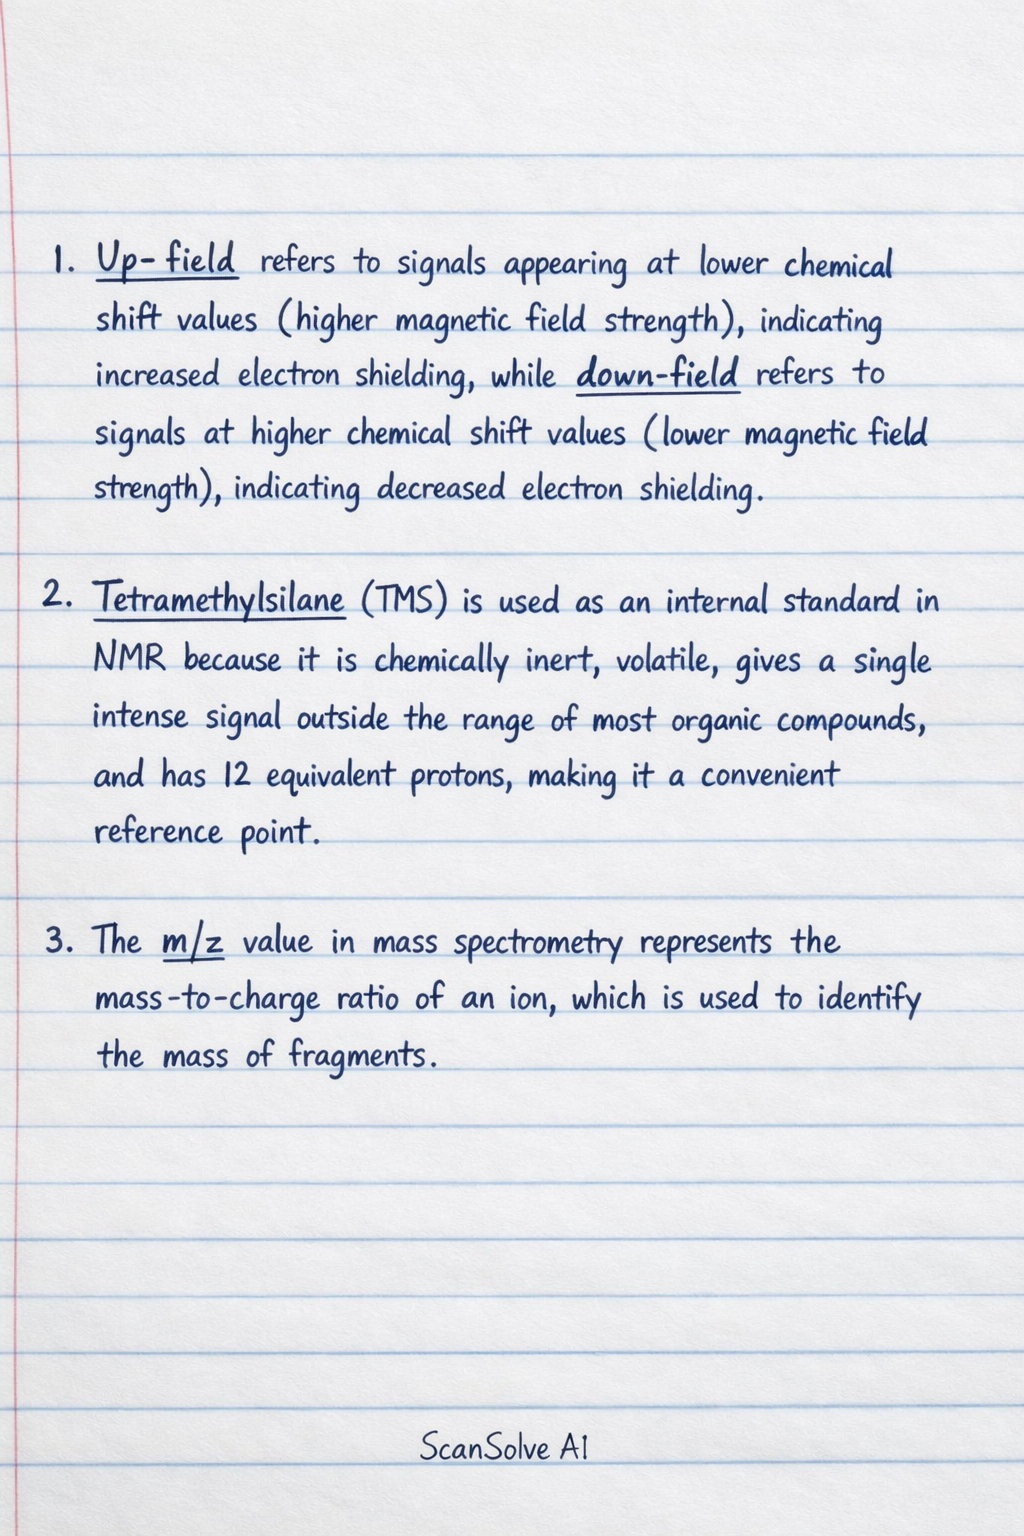 1. Up-field refers to signals appearing at lower chemical
shift values (higher magnetic field strength), indicating
increased electron shielding, while down-field refers to
signals at higher chemical shift values (lower magnetic field
strength), indicating decreased electron shielding.
2. Tetramethylsilane (TMS) is used as an internal standard in
NMR because it is chemically inert, volatile, gives a single
intense signal outside the range of most organic compounds,
and has 12 equivalent protons, making it a convenient
reference point.
3. The m/z value in mass spectrometry represents the
mass-to-charge ratio of an ion, which is used to identify
the mass of fragments.
ScanSolve AI